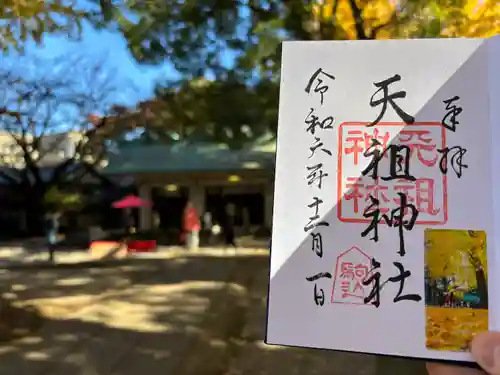 奉拝
天祖神社
天祖
神社
令和六年十二月一日